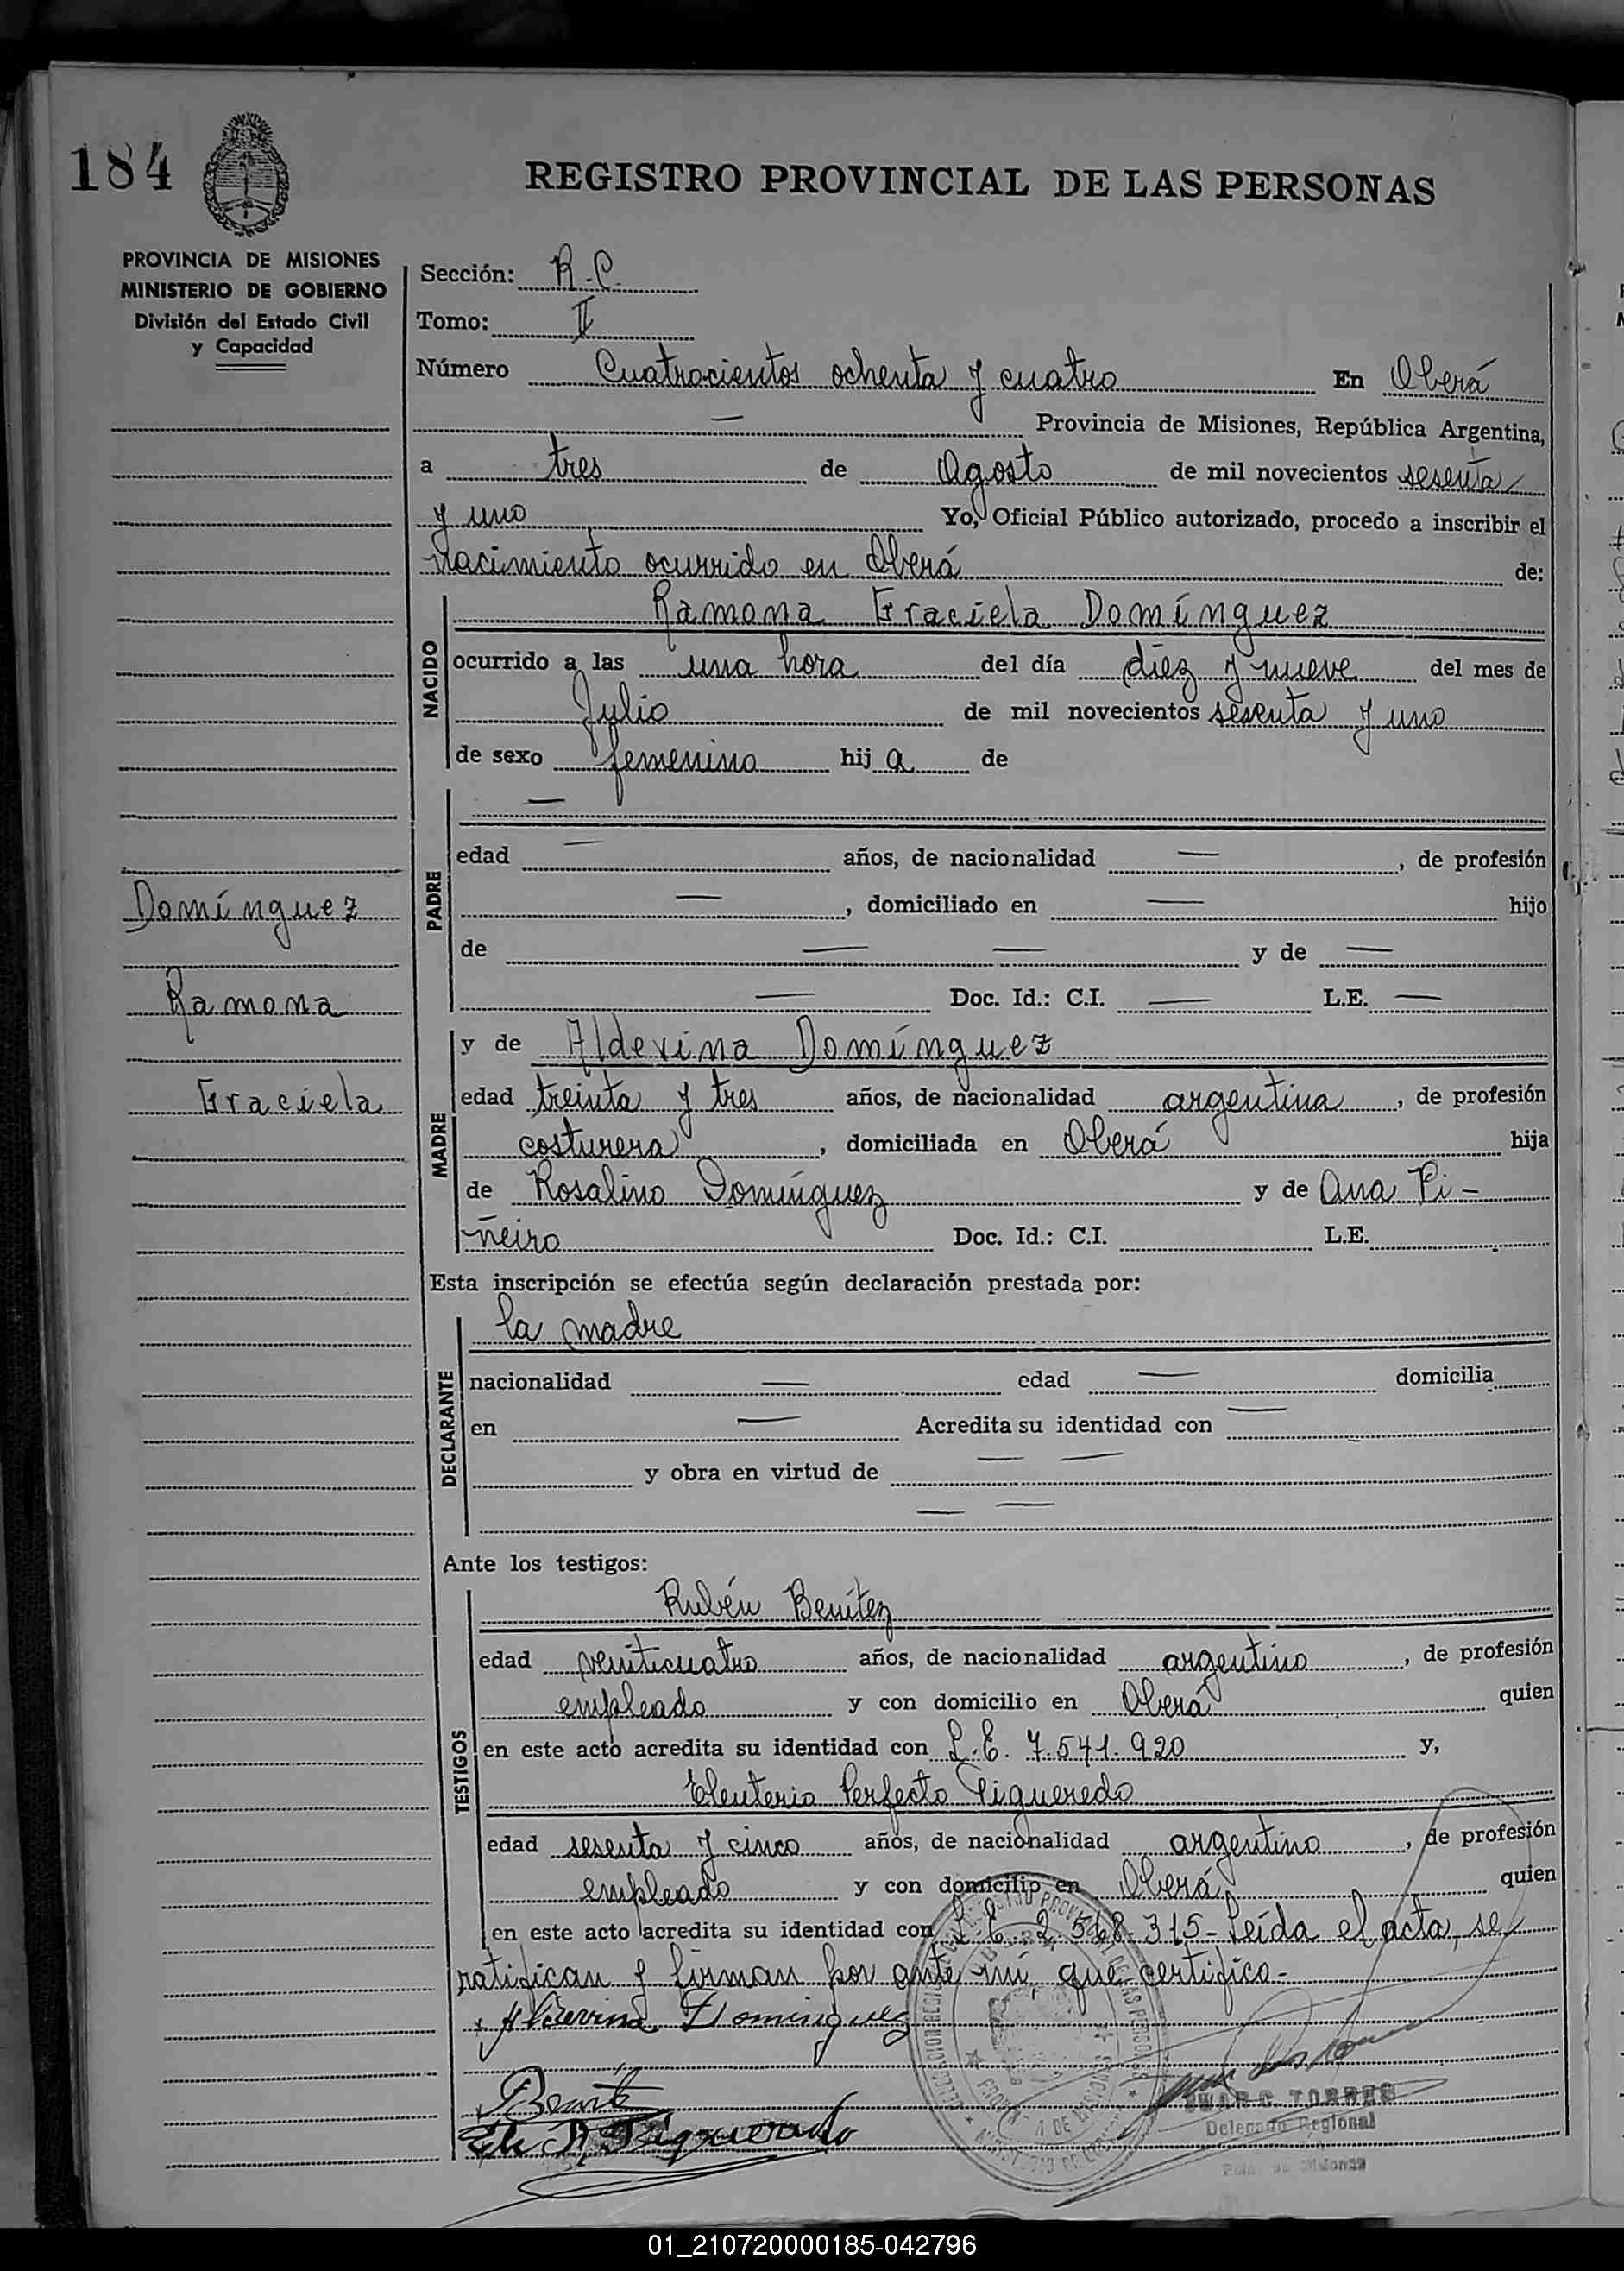 184
REGISTRO PROVINCIAL DE LAS PERSONAS
PROVINCIA DE MISIONES
MINISTERIO DE GOBIERNO
División del Estado Civil
y Capacidad
Sección: R.C.
Tomo: II
Número Cuatrocientos ochenta y cuatro En Oberá
— Provincia de Misiones, República Argentina,
a tres de Agosto de mil novecientos sesenta
y uno Yo, Oficial Público autorizado, procedo a inscribir el
nacimiento ocurrido en Oberá de:
NACIDO
Ramona Graciela Domínguez
ocurrido a las una hora del día diez y nueve del mes de
Julio de mil novecientos sesenta y uno
de sexo femenino hij a de
PADRE
—
edad — años, de nacionalidad —, de profesión
—, domiciliado en — hijo
de — — y de —
— Doc. Id.: C.I. — L.E. —
Domínguez
Ramona
Graciela
MADRE
y de Aldevina Domínguez
edad treinta y tres años, de nacionalidad argentina, de profesión
costurera, domiciliada en Oberá hija
de Rosalino Domínguez y de Ana Pi-
ñeiro Doc. Id.: C.I. L.E.
Esta inscripción se efectúa según declaración prestada por:
DECLARANTE
la madre
nacionalidad — edad — domicilia
en — Acredita su identidad con —
y obra en virtud de — —
— —
Ante los testigos:
TESTIGOS
Rubén Benítez
edad veinticuatro años, de nacionalidad argentino, de profesión
empleado y con domicilio en Oberá quien
en este acto acredita su identidad con L.E. 7.541.920 y,
Eleuterio Perfecto Figueredo
edad sesenta y cinco años, de nacionalidad argentino, de profesión
empleado y con domicilio en Oberá quien
en este acto acredita su identidad con L.E. 2.568.315- Leída el acta, se
ratifican y firman por ante mí que certifico-
Aldevina Dominguez
Benit
Figueredo
C. TORRES
Delegado Regional
01_210720000185-042796